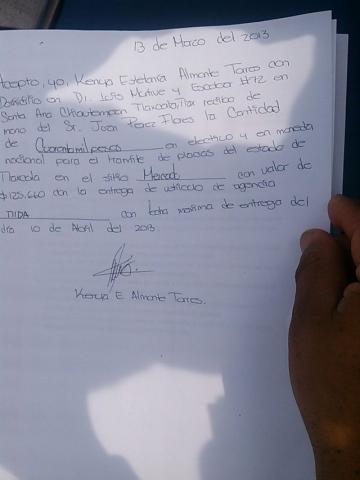 13 de Maco del 2013
Acepto, yo, Kenya Estefania Almonte Torres con
Domicilio en Dr. Luis Motive y Escobar #72 en
Santa Ana Chiautempan Tlaxcala, Tlax recibo de
mano del Sr. Juan Perez Flores la Cantidad
de Cuarentamilpesos en electivo y en moneda
nacional para el tramite de placas del estado de
Tlaxcala en el sitio Mercado con valor de
$125,660 con la entrega de vehiculo de agencia
TIIDA con fecha maxima de entrega del
dia 10 de Abril del 2013.
Kenya E Almonte Torres.